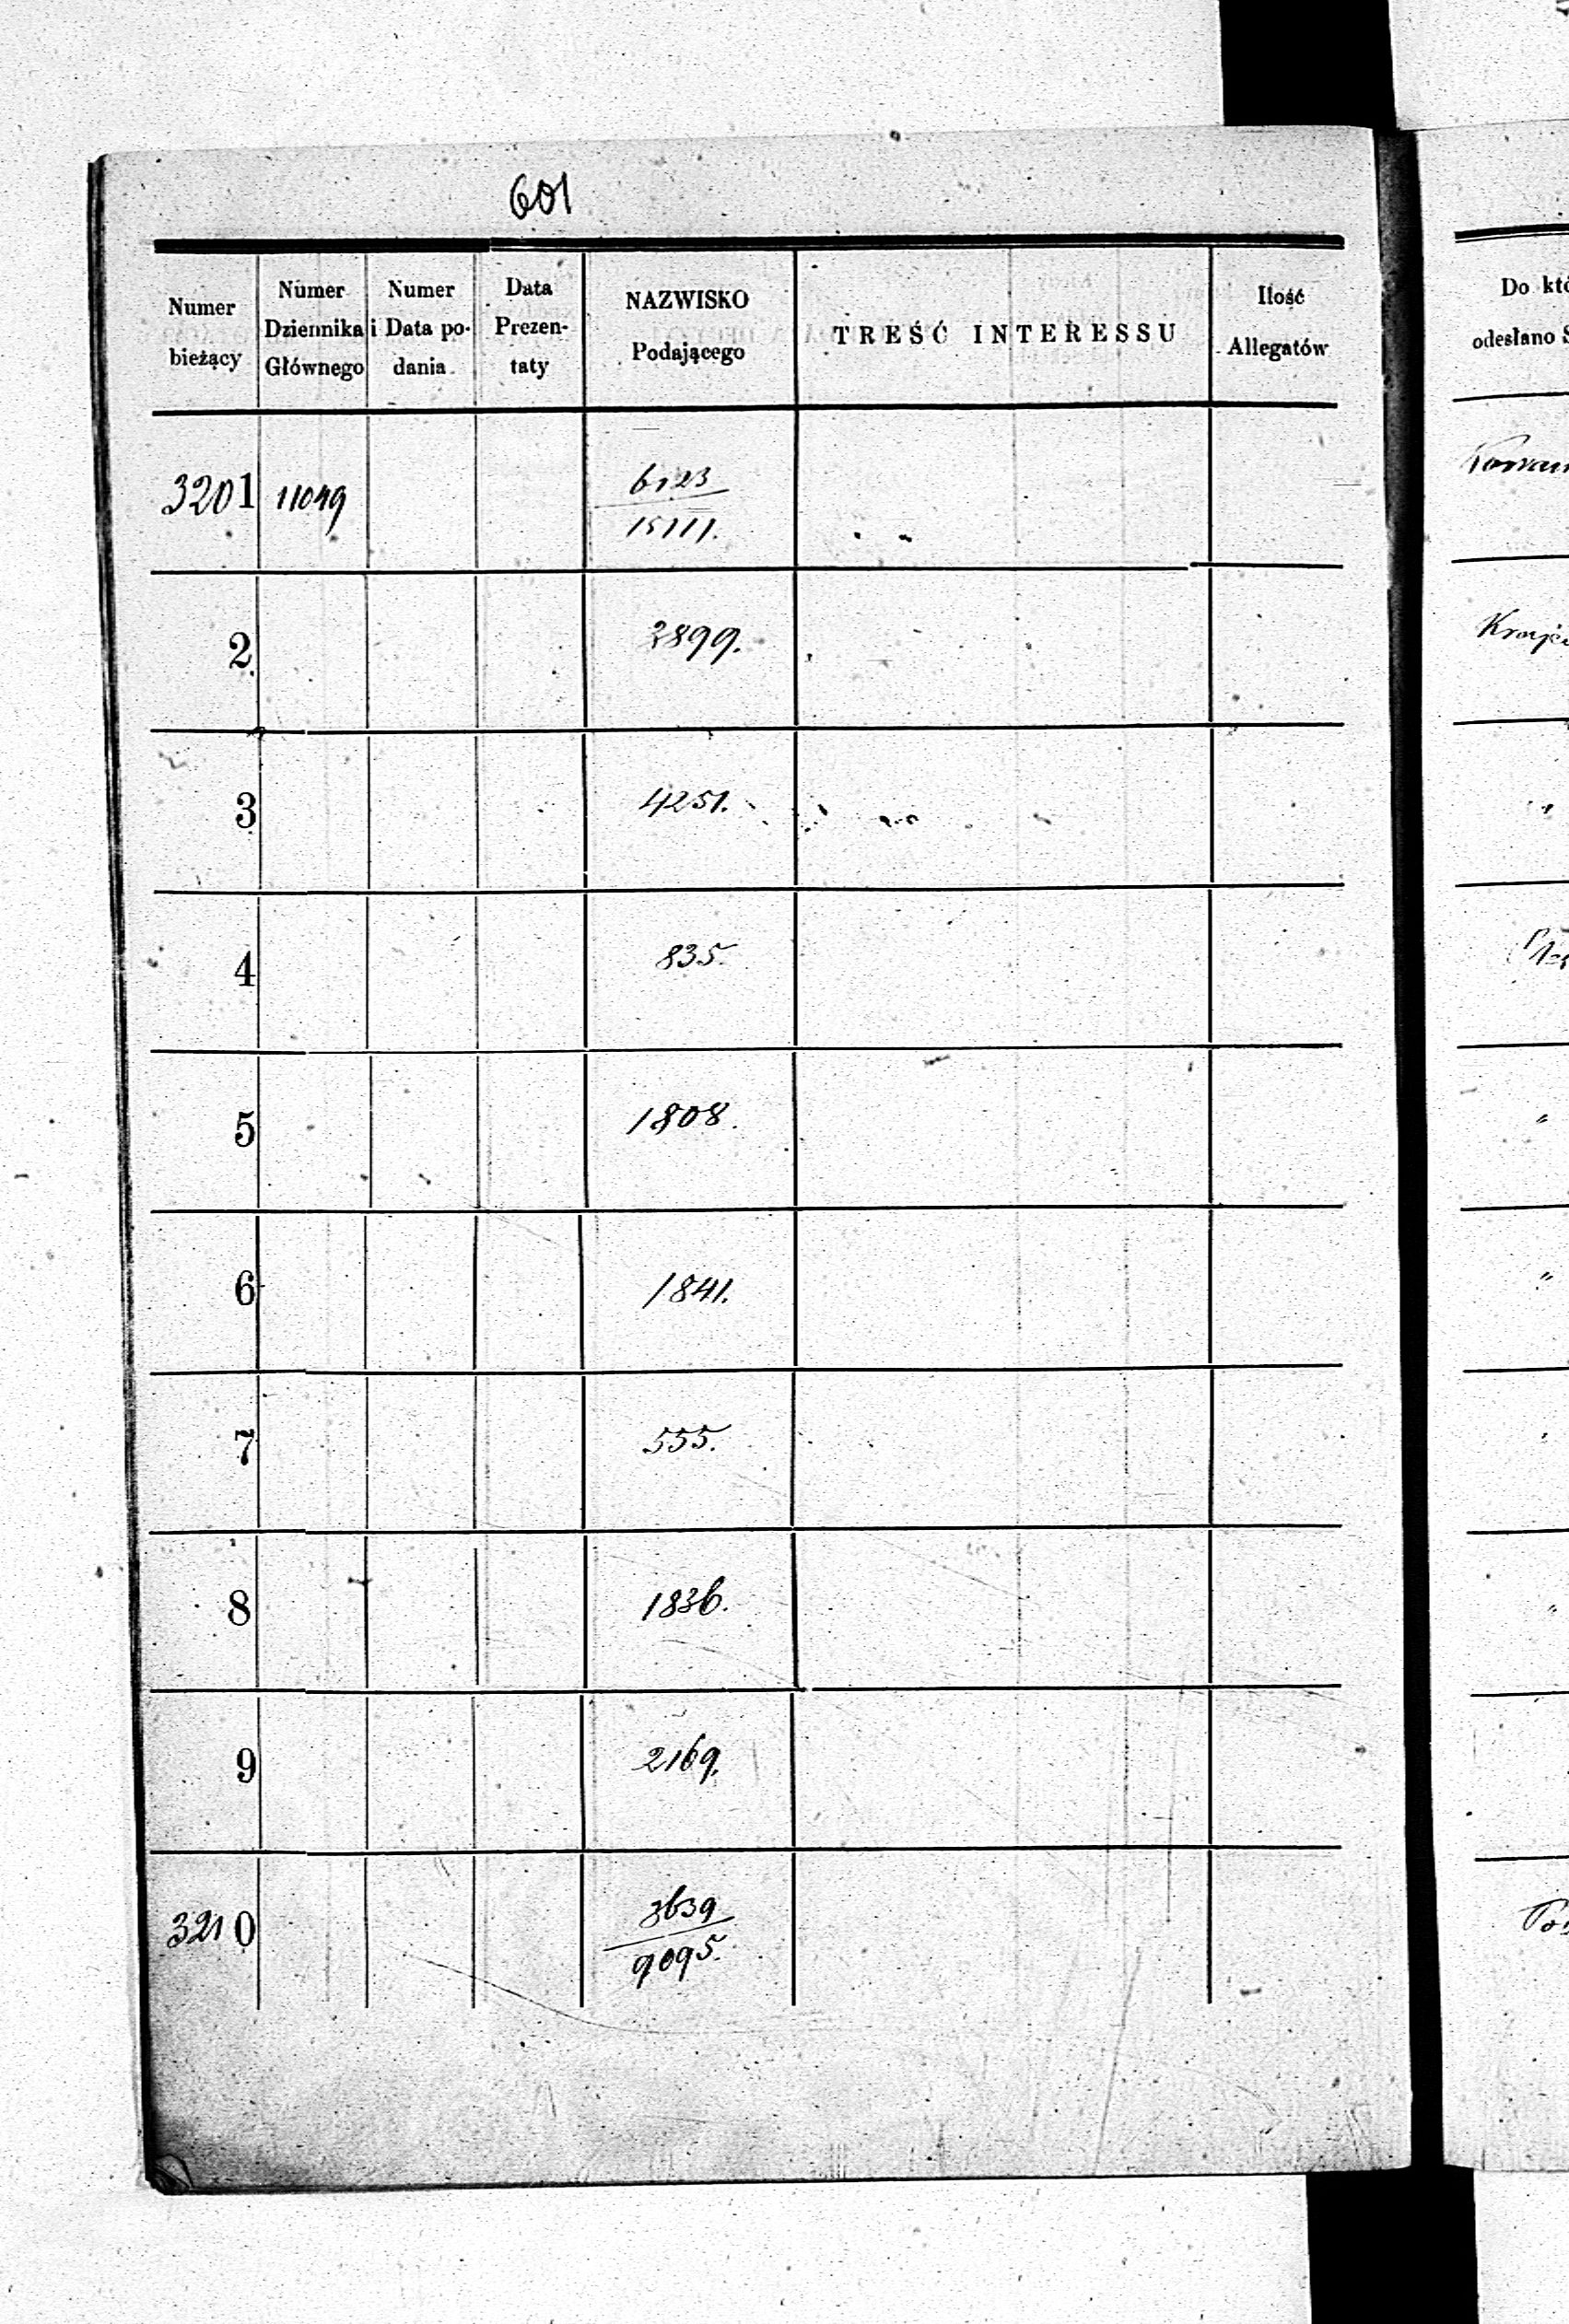 601
Numer bieżący | Numer Dziennika Głównego | Numer i Data podania | Data Prezentaty | NAZWISKO Podającego | TREŚĆ INTERESSU | Ilość Allegatów | Do któ
odesłano S
3201 11049 6123
15111.
2 3899.
3 4251.
4 835.
5 1808.
6 1841.
7 555.
8 1836.
9 2169.
3210 3639
9095.